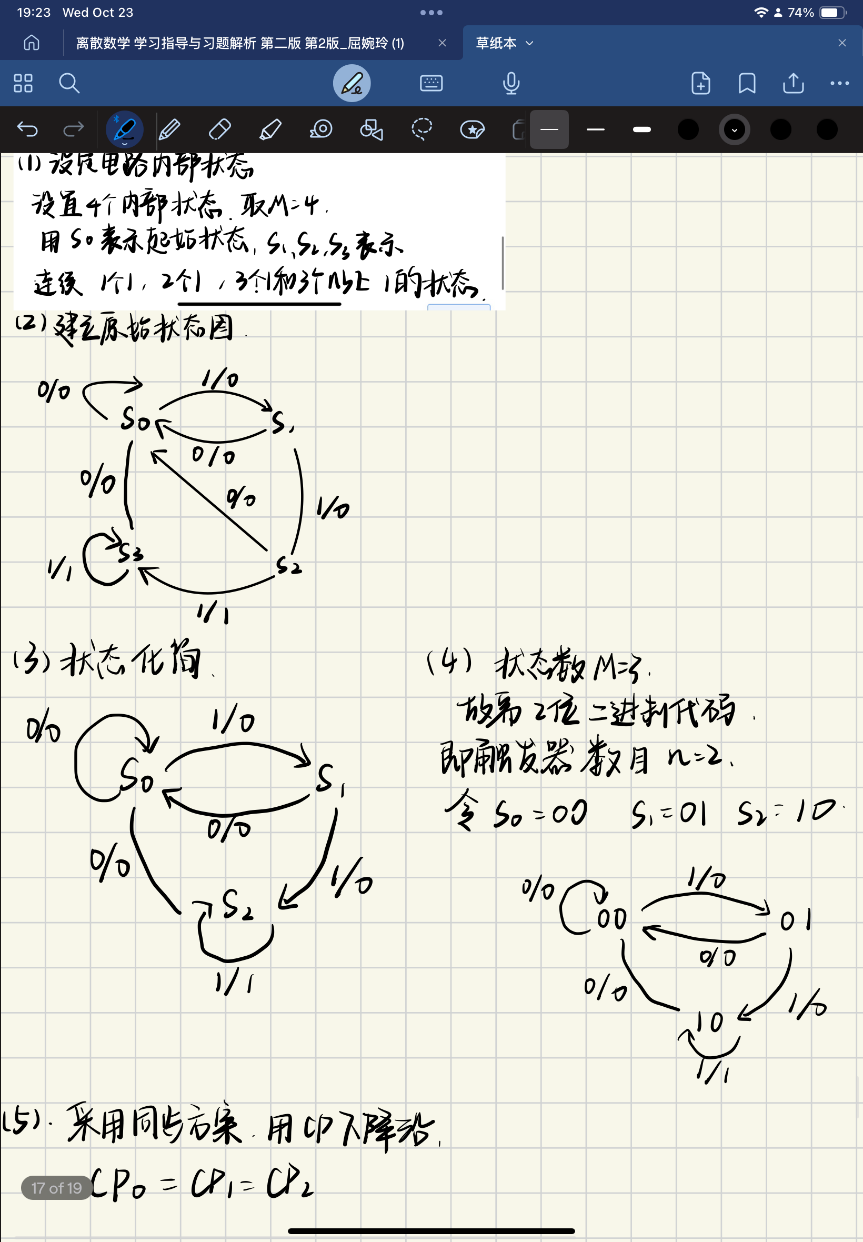 19:23 Wed Oct 23
74%
离散数学 学习指导与习题解析 第二版 第2版_屈婉玲 (1)
草纸本
(1) 设定电路内部状态
设置4个内部状态. 取M=4.
用S0表示起始状态, S1,S2,S3表示
连续 1个1, 2个1, 3个1和3个以上1的状态.
(2) 建立原始状态图.
0/0
1/0
S0
S1
0/0
0/0
0/0
1/0
S3
S2
1/1
1/1
(3) 状态化简.
0/0
1/0
S0
S1
0/0
0/0
1/0
S2
1/1
(4) 状态数M=3.
故需2位二进制代码.
即触发器数目n=2.
令 S0=00 S1=01 S2=10.
0/0
1/0
00
01
0/0
0/0
1/0
10
1/1
(5). 采用同步方案. 用CP下降沿.
CP0 = CP1 = CP2
17 of 19